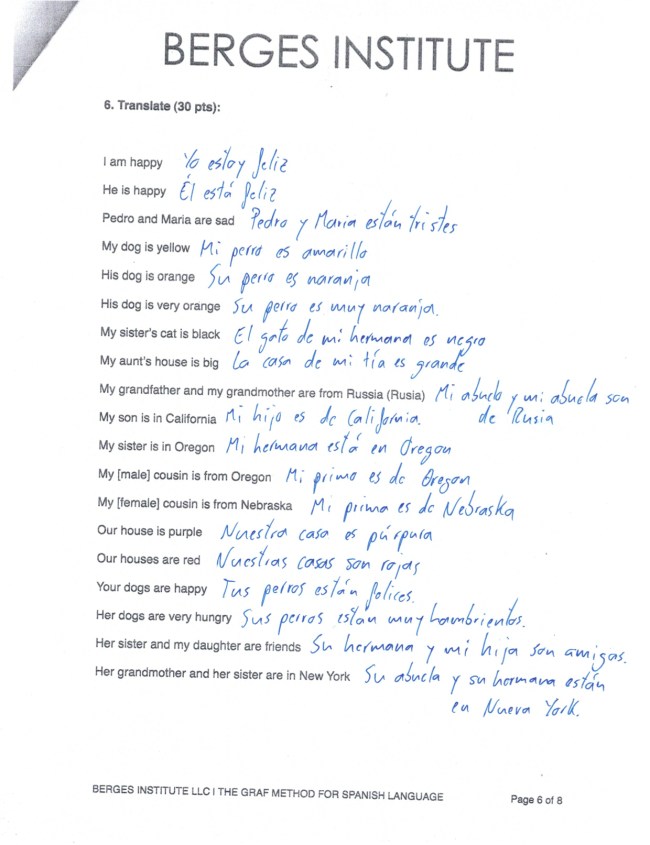 BERGES INSTITUTE
6. Translate (30 pts):
I am happy Yo estoy feliz
He is happy Él está feliz
Pedro and Maria are sad Pedro y Maria están tristes
My dog is yellow Mi perro es amarillo
His dog is orange Su perro es naranja
His dog is very orange Su perro es muy naranja.
My sister's cat is black El gato de mi hermana es negro
My aunt's house is big La casa de mi tía es grande
My grandfather and my grandmother are from Russia (Rusia) Mi abuelo y mi abuela son
de Rusia
My son is in California Mi hijo es de California.
My sister is in Oregon Mi hermana está en Oregon
My [male] cousin is from Oregon Mi primo es de Oregon
My [female] cousin is from Nebraska Mi prima es de Nebraska
Our house is purple Nuestra casa es púrpura
Our houses are red Nuestras casas son rojas
Your dogs are happy Tus perros están felices.
Her dogs are very hungry Sus perros están muy hambrientos.
Her sister and my daughter are friends Su hermana y mi hija son amigas.
Her grandmother and her sister are in New York Su abuela y su hermana están
en Nueva York.
BERGES INSTITUTE LLC | THE GRAF METHOD FOR SPANISH LANGUAGE Page 6 of 8